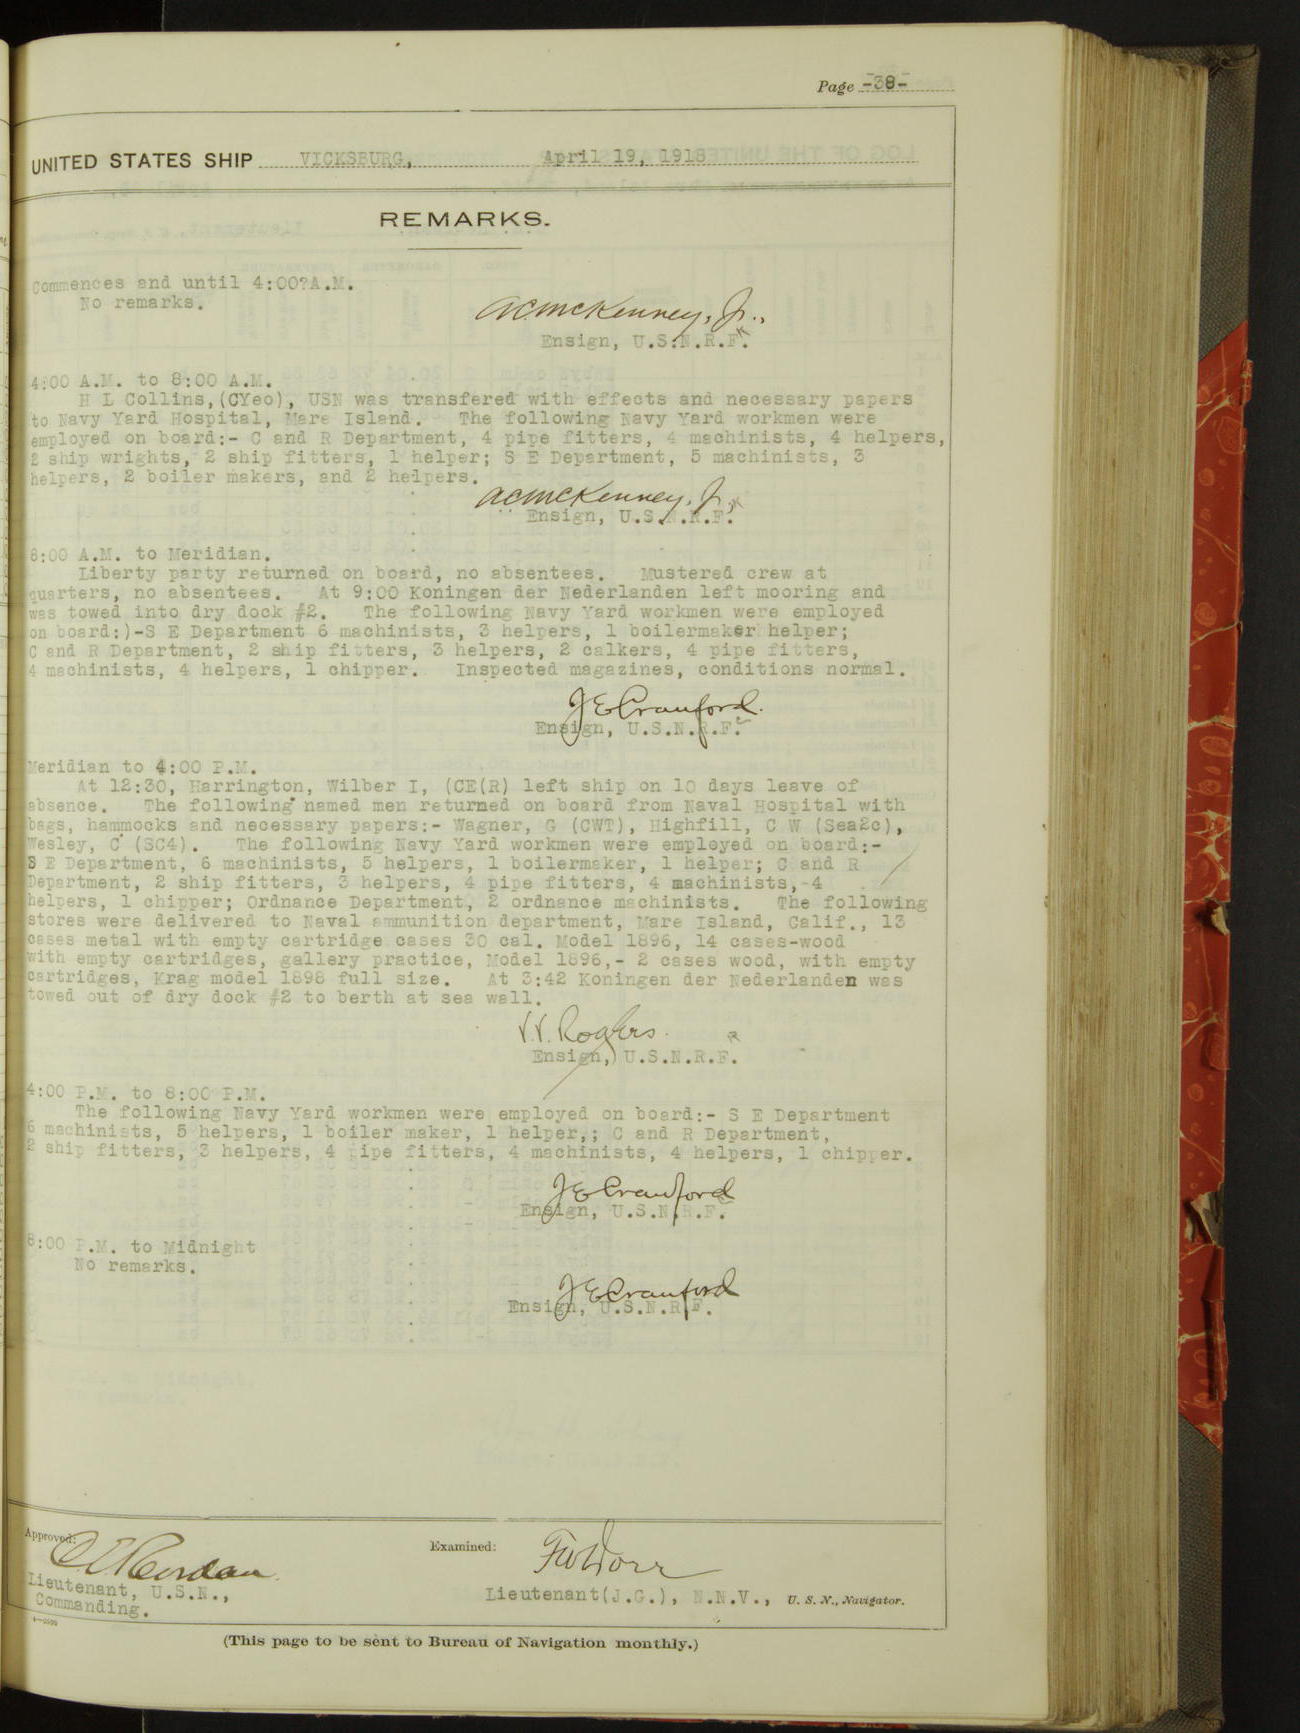 Page -38-
UNITED STATES SHIP VICKSBURG, April 19, 1918
REMARKS.
Commences and until 4:00?A.M.
No remarks.
A.C.McKenney, Jr.,
Ensign, U.S.N.R.F.
4:00 A.M. to 8:00 A.M.
H L Collins,(CYeo), USN was transfered with effects and necessary papers
to Navy Yard Hospital, Mare Island. The following Navy Yard workmen were
employed on board:- C and R Department, 4 pipe fitters, 4 machinists, 4 helpers,
2 ship wrights, 2 ship fitters, 1 helper; S E Department, 5 machinists, 3
helpers, 2 boiler makers, and 2 helpers.
A.C.McKenney, Jr,
Ensign, U.S.N.R.F.
8:00 A.M. to Meridian.
Liberty party returned on board, no absentees. Mustered crew at
quarters, no absentees. At 9:00 Koningen der Nederlanden left mooring and
was towed into dry dock #2. The following Navy Yard workmen were employed
on board:)-S E Department 6 machinists, 3 helpers, 1 boilermaker helper;
C and R Department, 2 ship fitters, 3 helpers, 2 calkers, 4 pipe fitters,
4 machinists, 4 helpers, 1 chipper. Inspected magazines, conditions normal.
J E Crawford.
Ensign, U.S.N.R.F.
Meridian to 4:00 P.M.
At 12:30, Harrington, Wilber I, (CE(R) left ship on 10 days leave of
absence. The following named men returned on board from Naval Hospital with
bags, hammocks and necessary papers:- Wagner, G (CWT), Highfill, C W (Sea2c),
Wesley, C (SC4). The following Navy Yard workmen were employed on board:-
S E Department, 6 machinists, 5 helpers, 1 boilermaker, 1 helper; C and R
Department, 2 ship fitters, 3 helpers, 4 pipe fitters, 4 machinists,-4
helpers, 1 chipper; Ordnance Department, 2 ordnance machinists. The following
stores were delivered to Naval ammunition department, Mare Island, Calif., 13
cases metal with empty cartridge cases 30 cal. Model 1896, 14 cases-wood
with empty cartridges, gallery practice, Model 1896,- 2 cases wood, with empty
cartridges, Krag model 1898 full size. At 3:42 Koningen der Nederlanden was
towed out of dry dock #2 to berth at sea wall.
V.V. Rogers.
Ensign, U.S.N.R.F.
4:00 P.M. to 8:00 P.M.
The following Navy Yard workmen were employed on board:- S E Department
6 machinists, 5 helpers, 1 boiler maker, 1 helper,; C and R Department,
2 ship fitters, 3 helpers, 4 pipe fitters, 4 machinists, 4 helpers, 1 chipper.
J E Crawford
Ensign, U.S.N.R.F.
8:00 P.M. to Midnight
No remarks.
J E Crawford
Ensign, U.S.N.R.F.
Approved:
Examined:
F W Dorr
Lieutenant, U.S.N.,
Commanding.
Lieutenant(J.G.), N.N.V., U. S. N., Navigator.
(This page to be sent to Bureau of Navigation monthly.)